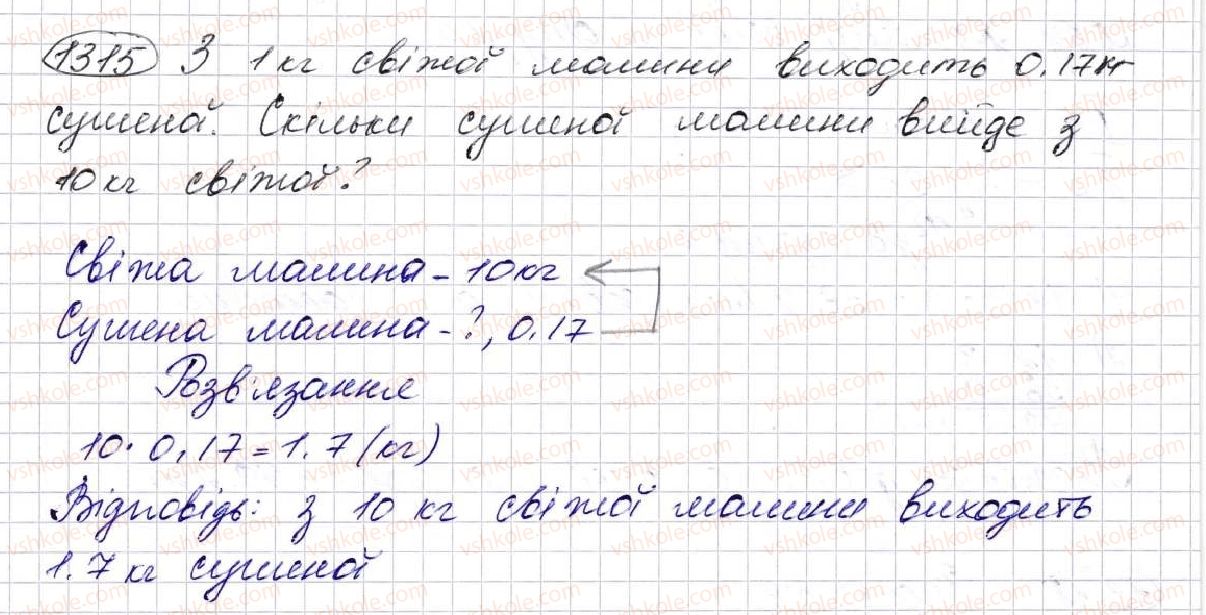 1315 З 1 кг свіжої малини виходить 0.17 кг
сушеної. Скільки сушеної малини вийде з
10 кг свіжої?
Свіжа малина - 10 кг
Сушена малина - ?, 0.17
Розв'язання
10 · 0,17 = 1.7 (кг)
Відповідь: з 10 кг свіжої малини виходить
1.7 кг сушеної